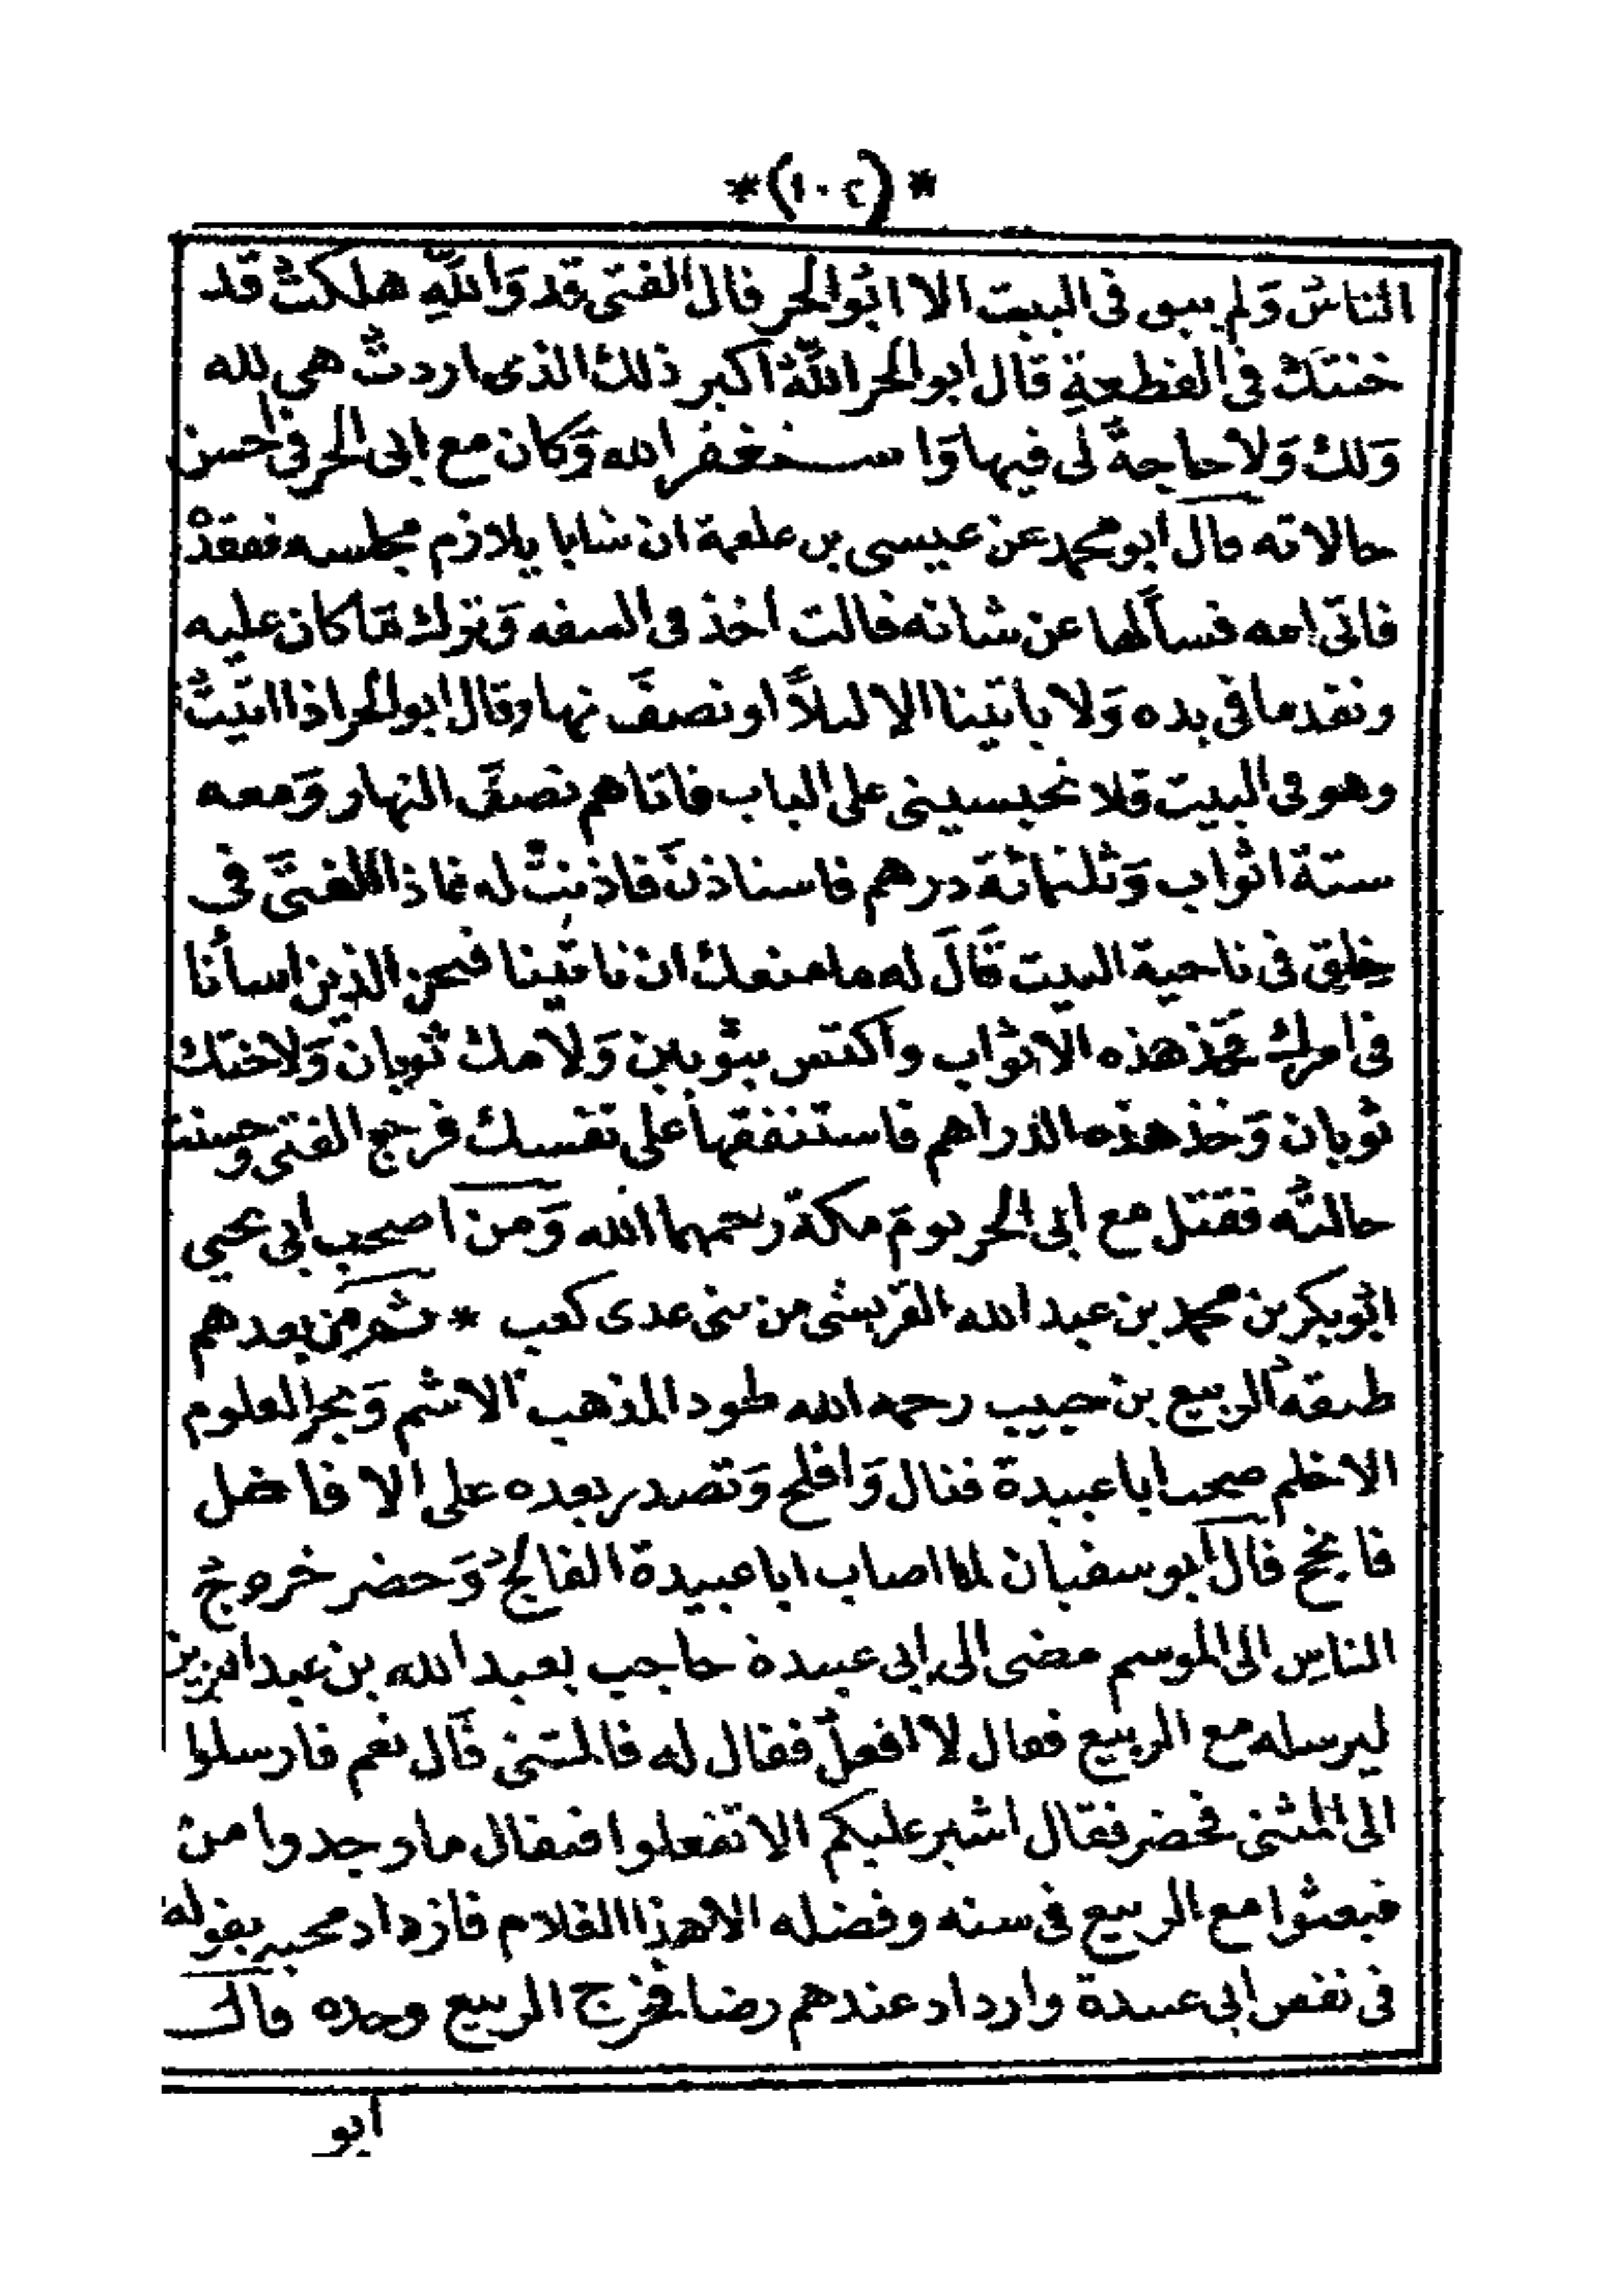 *(١٠٢)*
الناسُ وَلم يبق فى البيت الا ابُوالحر قال الفتى قد وَاللهِ هلكتُ قد
خنتكَ فى القطعةِ قال ابو الحر اللهُ اكبر ذلك الذى اردتُ هى لله
وَلك وَلا حاجةً لى فيها وَاستغفر الله وَكان مع ابى الحر فى احسن
حالاته قال ابو محمد عن عيسى بن علقمة ان شابا يلازم مجلسه ففقدهُ
فاتى امه فسألها عن شانه قالت اخذ فى السفه وَترك ما كان عليه
ونفد ما فى يده وَلا ياتينا الا ليلاً او نصفَ نهار وقال ابو الحر اذا اتيتُ
وهو فى البيت فلا تحبسينى على الباب فاتاهم نصفَ النهار وَمعه
ستة اثواب وَثلثمائة درهم فاستاذنَ فاذنتْ له فاذا الفتى فى
خلِق فى ناحية البيت قَالَ له ما منعك ان تاتينا فنحن الذين اسأنا
فى امرك فخذ هذه الاثواب واكتس بثوبين وَلامك ثوبان وَلاختك
ثوبان وَخذ هذه الدراهم فاستنفقها على نفسك فرجع الفتى وحسنت
حالتُه فقتل مع ابى الحر يومَ مكة رحمهما الله وَمن اصحب ابى يحيى
ابُوبكر بن محمد بن عبد الله القريشى من بنى عدى كعب * ثم من بعدهم
طبقة الربيع بن حبيب رحمه الله طود المذهب الاشم وَبحر العلوم
الاخطم صحب ابا عبيدة فنال وَافلح وَتصدر بعده على الافاضل
فانجح قال ابو سفيان لما اصاب ابا عبيدة الفالجُ وَحضر خروجُ
الناس الى الموسم مضى الى ابى عبيدة حاجب بعبد الله بن عبد العزيز
ليرسله مع الربيع فقال لا افعلُ فقال له فالمثنى قَال نعم فارسلوا
الى المثنى فحضر فقال اشير عليكم الا تفعلوا فيقال ما وجدوا من
فبعثوا مع الربيع فى سنه وفضله الا هذا الغلام فازداد محبه بقوله
فى نفس ابى عبيدة وازداد عندهم رضا فخرج الربيع وحده قال
ابو